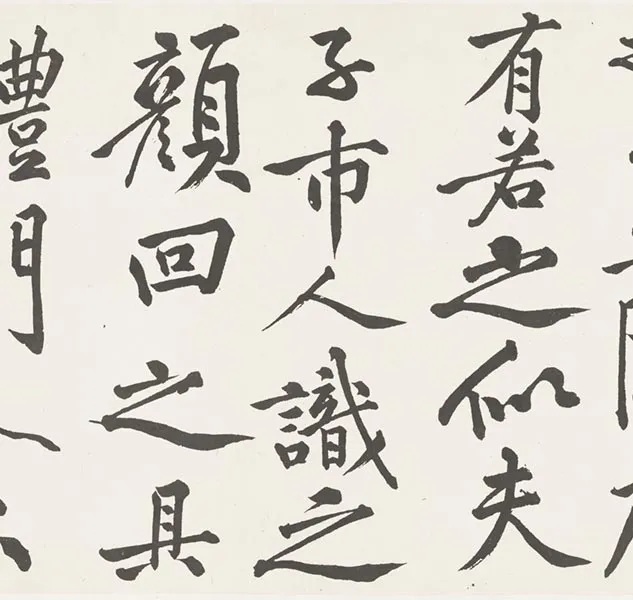 有若之似夫
子市人識之
顏回之具